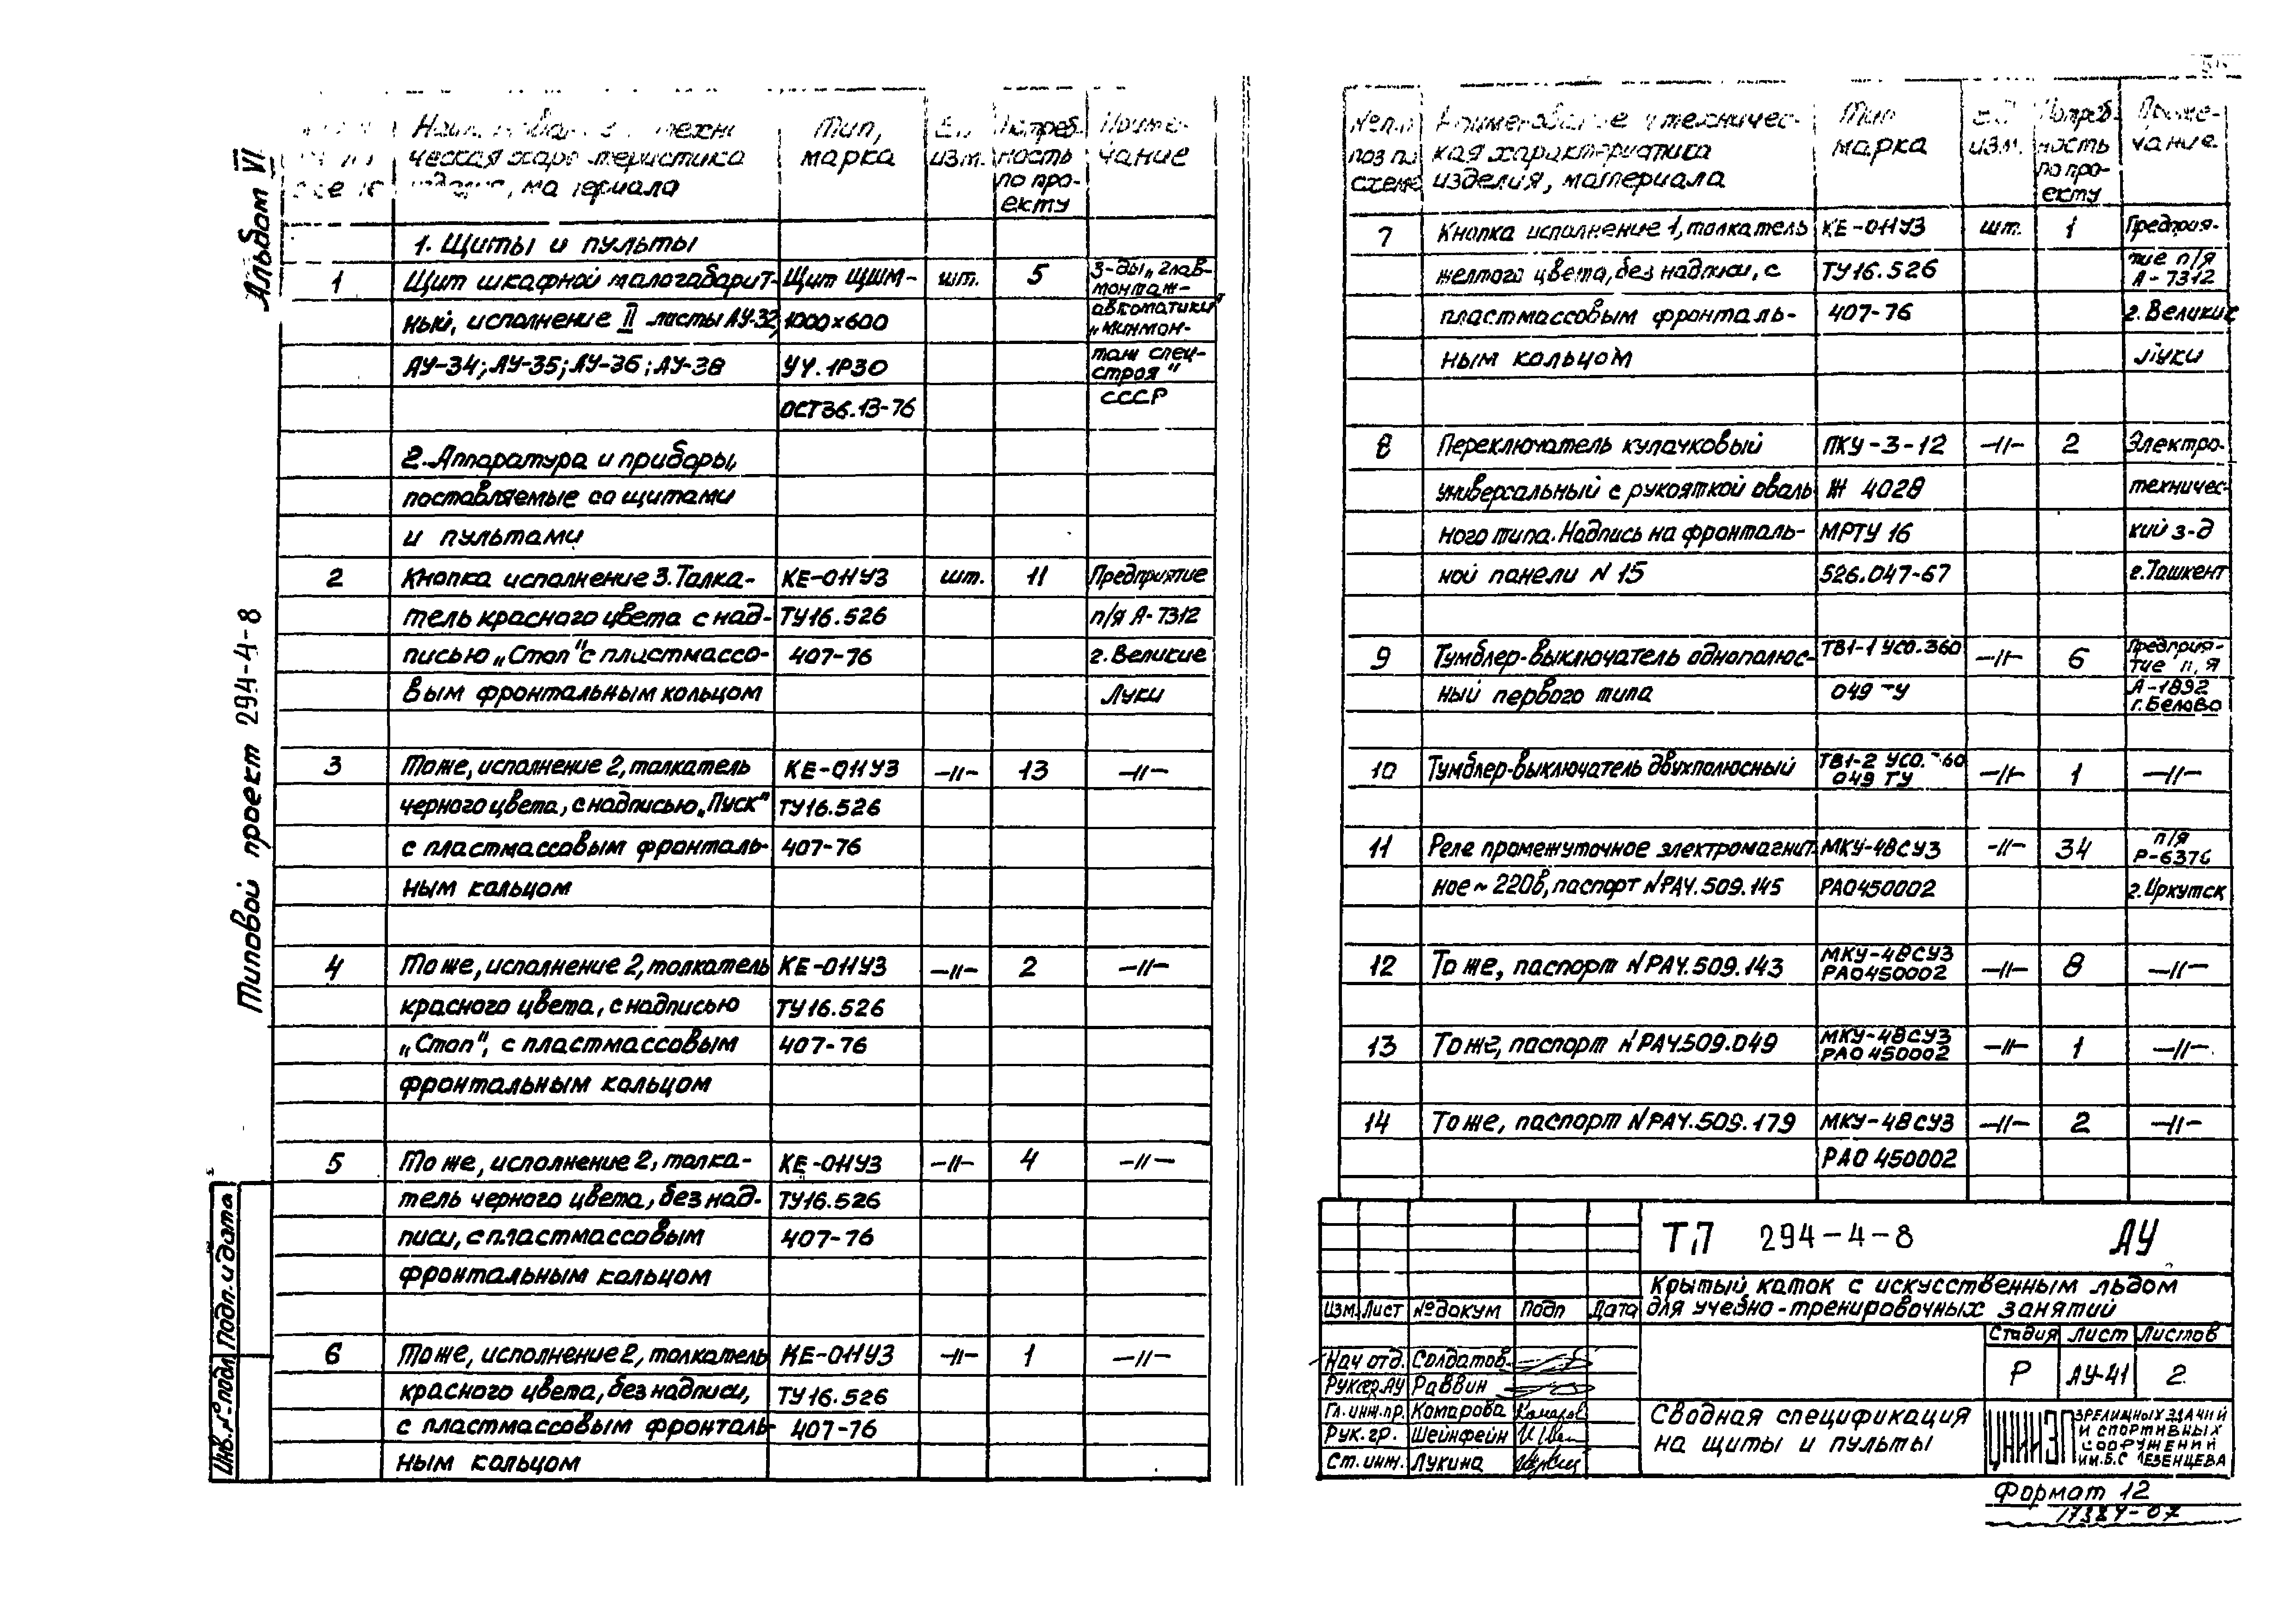 Альбом VI
Типовой проект 294-4-8
Инв.№подл. Подп. и дата
техни- Тип, изм. Потреб- Приме-
ческая характеристика марка ность чание
материала по про-
екту
1. Щиты и пульты
1 Щит шкафной малогабарит- Щит ЩШМ- шт. 5 З-ды „Глав-
монтаж-
ный, исполнение II листы АУ-32, 1000х600 автоматики"
„Минмон-
АУ-34; АУ-35; АУ-36; АУ-38 УЧ.1Р30 таж спец-
строя"
ОСТ36.13-76 СССР
2. Аппаратура и приборы,
поставляемые со щитами
и пультами
2 Кнопка исполнение 3. Толка- КЕ-011У3 шт. 11 Предприятие
тель красного цвета с над- ТУ16.526 п/я А-7312
писью „Стоп" с пластмассо- 407-76 г. Великие
вым фронтальным кольцом Луки
3 То же, исполнение 2, толкатель КЕ-011У3 —"— 13 —"—
черного цвета, с надписью „Пуск" ТУ16.526
с пластмассовым фронталь- 407-76
ным кольцом
4 То же, исполнение 2, толкатель КЕ-011У3 —"— 2 —"—
красного цвета, с надписью ТУ16.526
„Стоп", с пластмассовым 407-76
фронтальным кольцом
5 То же, исполнение 2, толка- КЕ-011У3 —"— 4 —"—
тель черного цвета, без над- ТУ16.526
писи, с пластмассовым 407-76
фронтальным кольцом
6 То же, исполнение 2, толкатель КЕ-011У3 —"— 1 —"—
красного цвета, без надписи, ТУ16.526
с пластмассовым фронталь- 407-76
ным кольцом
№п.п Наименование и техничес- Тип ед Потреб- Приме-
поз по кая характеристика марка изм. ность чание
схеме изделия, материала по про-
екту
7 Кнопка исполнение 1, толкатель КЕ-011У3 шт. 1 Предприя-
желтого цвета, без надписи, с ТУ16.526 тие п/я
А-7312
пластмассовым фронталь- 407-76 г. Великие
ным кольцом Луки
8 Переключатель кулачковый ПКУ-3-12 —"— 2 Электро-
универсальный с рукояткой оваль Ж 4028 техничес-
ного типа. Надпись на фронталь- МРТУ 16 кий з-д
ной панели N 15 526.047-67 г. Ташкент
9 Тумблер-выключатель однополюс- ТВ1-1 УСО.360 —"— 6 Предприя-
тие п/я
ный первого типа 049 ТУ А-1892
г. Белово
10 Тумблер-выключатель двухполюсный ТВ1-2 УСО.360 —"— 1 —"—
049 ТУ
11 Реле промежуточное электромагнит- МКУ-48СУ3 —"— 34 п/я
Р-6376
ное ~ 220в, паспорт N РАЧ.509.145 РАО450002 г. Иркутск
12 То же, паспорт N РАЧ.509.143 МКУ-48СУ3 —"— 8 —"—
РАО450002
13 То же, паспорт N РАЧ.509.049 МКУ-48СУ3 —"— 1 —"—
РАО 450002
14 То же, паспорт N РАЧ.509.179 МКУ-48СУ3 —"— 2 —"—
РАО 450002
ТП 294-4-8 АУ
Крытый каток с искусственным льдом
для учебно-тренировочных занятий
Изм. Лист №докум Подп Дата
Стадия Лист Листов
Р АУ-41 2
Нач отд. Солдатов
Рук сер. АУ Раввин
Гл. инж. пр. Комарова
Рук. гр. Шейнфейн
Ст. инж. Лукина
Сводная спецификация
на щиты и пульты
ЗРЕЛИЩНЫХ ЗДАНИЙ
И СПОРТИВНЫХ
СООРУЖЕНИЙ
ИМ. Б.С МЕЗЕНЦЕВА
Формат 12
17384-07